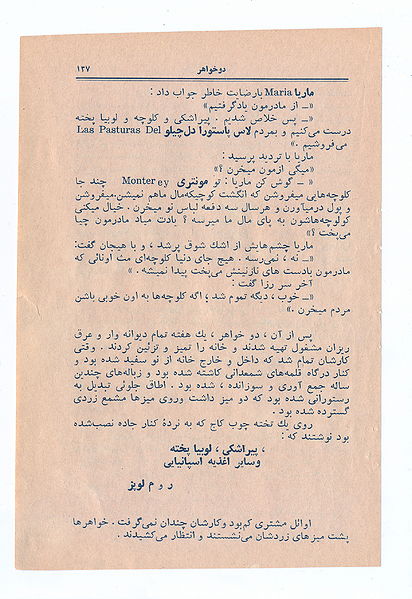 دوخواهر
۱۲۷
ماریا Maria بارضایت خاطر جواب داد :
«ـ از مادرمون یادگرفتیم»
«ـ پس خلاص شدیم . پیراشکی و کلوچه و لوبیا پخته
درست می‌کنیم و بمردم لاس پاستورا دل‌چیلو Las Pasturas Del
می‌فروشیم .»
ماریا با تردید پرسید :
«میگی ازمون میخرن ؟»
«ـ گوش کن ماریا : تو مونتری Monterey چند جا
کلوچه‌هایی میفروشن که انگشت کوچیکه‌مال ماهم نمیشن.میفروشن
و پول درمیاورن و هرسال سه دفعه لباس نو میخرن . خیال میکنی
کولوچه‌هاشون به پای مال ما میرسه ؟ یادت میاد مادرمون چیا
می‌پخت ؟»
ماریا چشم‌هایش از اشك شوق پرشد ، و با هیجان گفت:
«ـ نه ، نمی‌رسه . هیچ جای دنیا کلوچه‌ای مث اونائی که
مادرمون بادست های نازنینش می‌پخت پیدا نمیشه . »
آخر سر رزا گفت :
«ـ خوب ، دیگه تموم شد ؛ اگه کلوچه‌ها به اون خوبی باشن
مردم میخرن .»
پس از آن ، دو خواهر ، یك هفته تمام دیوانه وار و عرق
ریزان مشغول تهیه شدند و خانه را تمیز و تزئین کردند . وقتی
کارشان تمام شد که داخل و خارج خانه از نو سفید شده بود و
کنار درگاه قلمه‌های شمعدانی کاشته شده بود و زباله‌های چندین
ساله جمع آوری و سوزانده ، شده بود . اطاق جلوئی تبدیل به
رستورانی شده بود که دو میز داشت وروی میزها مشمع زردی
گسترده شده بود .
روی یك تخته چوب کاج که به نردهٔ کنار جاده نصب‌شده
بود نوشتند که :
، پیراشکی ، لوبیا پخته
وسایر اغذیه اسپانیایی
ر و م لوپز
اوائل مشتری کم‌بود وکارشان چندان نمی‌گرفت . خواهرها
پشت میزهای زردشان می‌نشستند و انتظار می‌کشیدند .